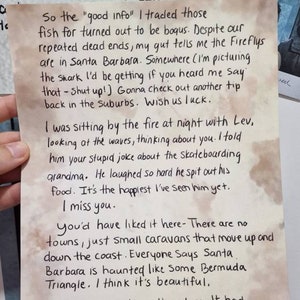 So the "good info" I traded those
fish for turned out to be bogus. Despite our
repeated dead ends, my gut tells me the Fireflys
are in Santa Barbara. Somewhere (I'm picturing
the smirk I'd be getting if you heard me say
that - Shut up!) Gonna check out another tip
back in the suburbs. Wish us luck.
I was sitting by the fire at night with Lev,
looking at the waves, thinking about you. I told
him your stupid joke about the skateboarding
grandma. He laughed so hard he spit out his
food. It's the happiest I've seen him yet.
I miss you.
You'd have liked it here- There are no
towns, just small caravans that move up and
down the coast. Everyone says Santa
Barbara is haunted like some Bermuda
Triangle. I think it's beautiful.